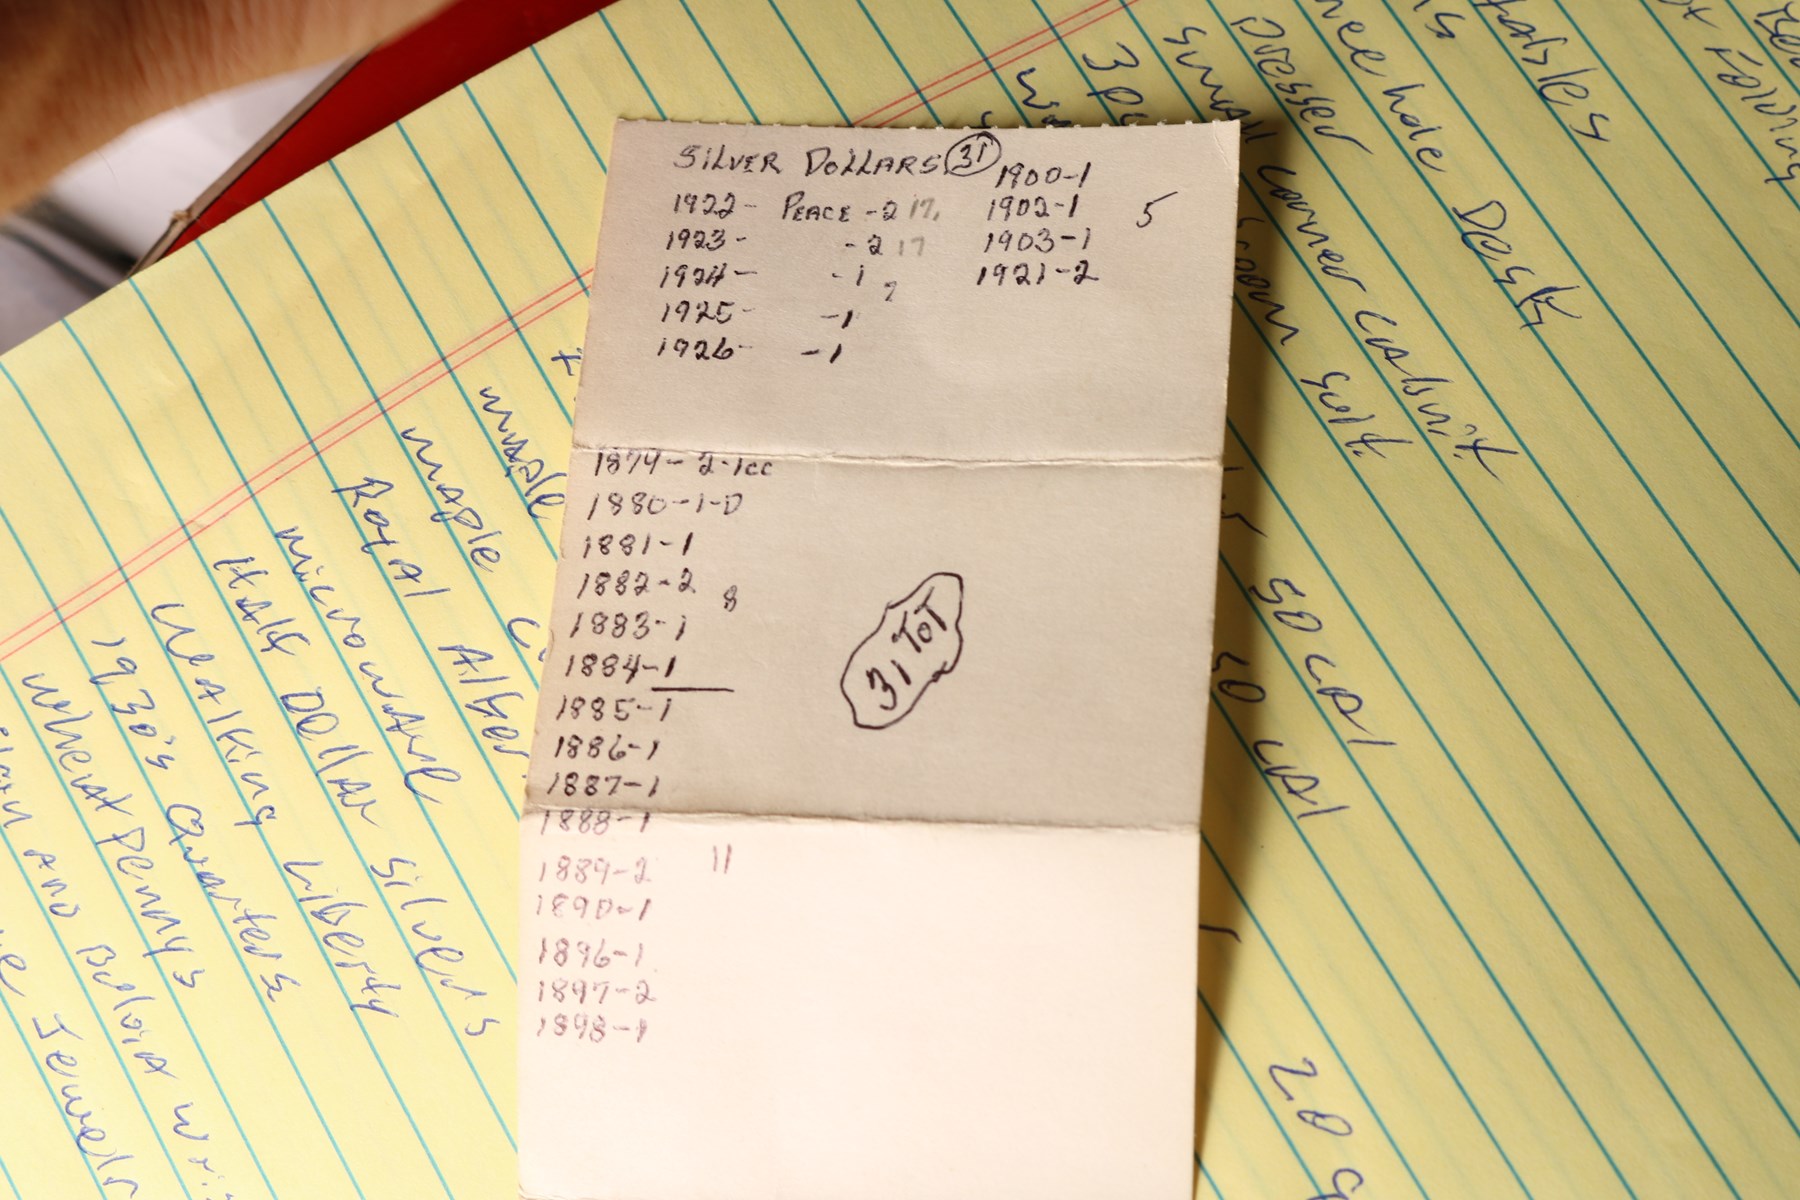 SILVER DOLLARS 31
1900-1
1922- PEACE -2 17.
1902-1
5
1923- -2 17
1903-1
1924- -1
1921-2
7
1925- -1
1926- -1
1879- 2-1cc
1880-1-O
1881-1
1882-2
8
1883-1
1884-1
31 TOT
1885-1
1886-1
1887-1
1888-1
1889-2
11
1890-1
1896-1
1897-2
1898-1
maple
maple
Royal Alber
microwave
Half Dollar Silvers
Wealking Liberty
1930's Quarters
Wheat Penny's
and Buloia
Jewelr
Tables
Knee hole Desk
Dresser
Small corner Cabnit
room suit
3 pc
50 CAl
50 CAl
20 g